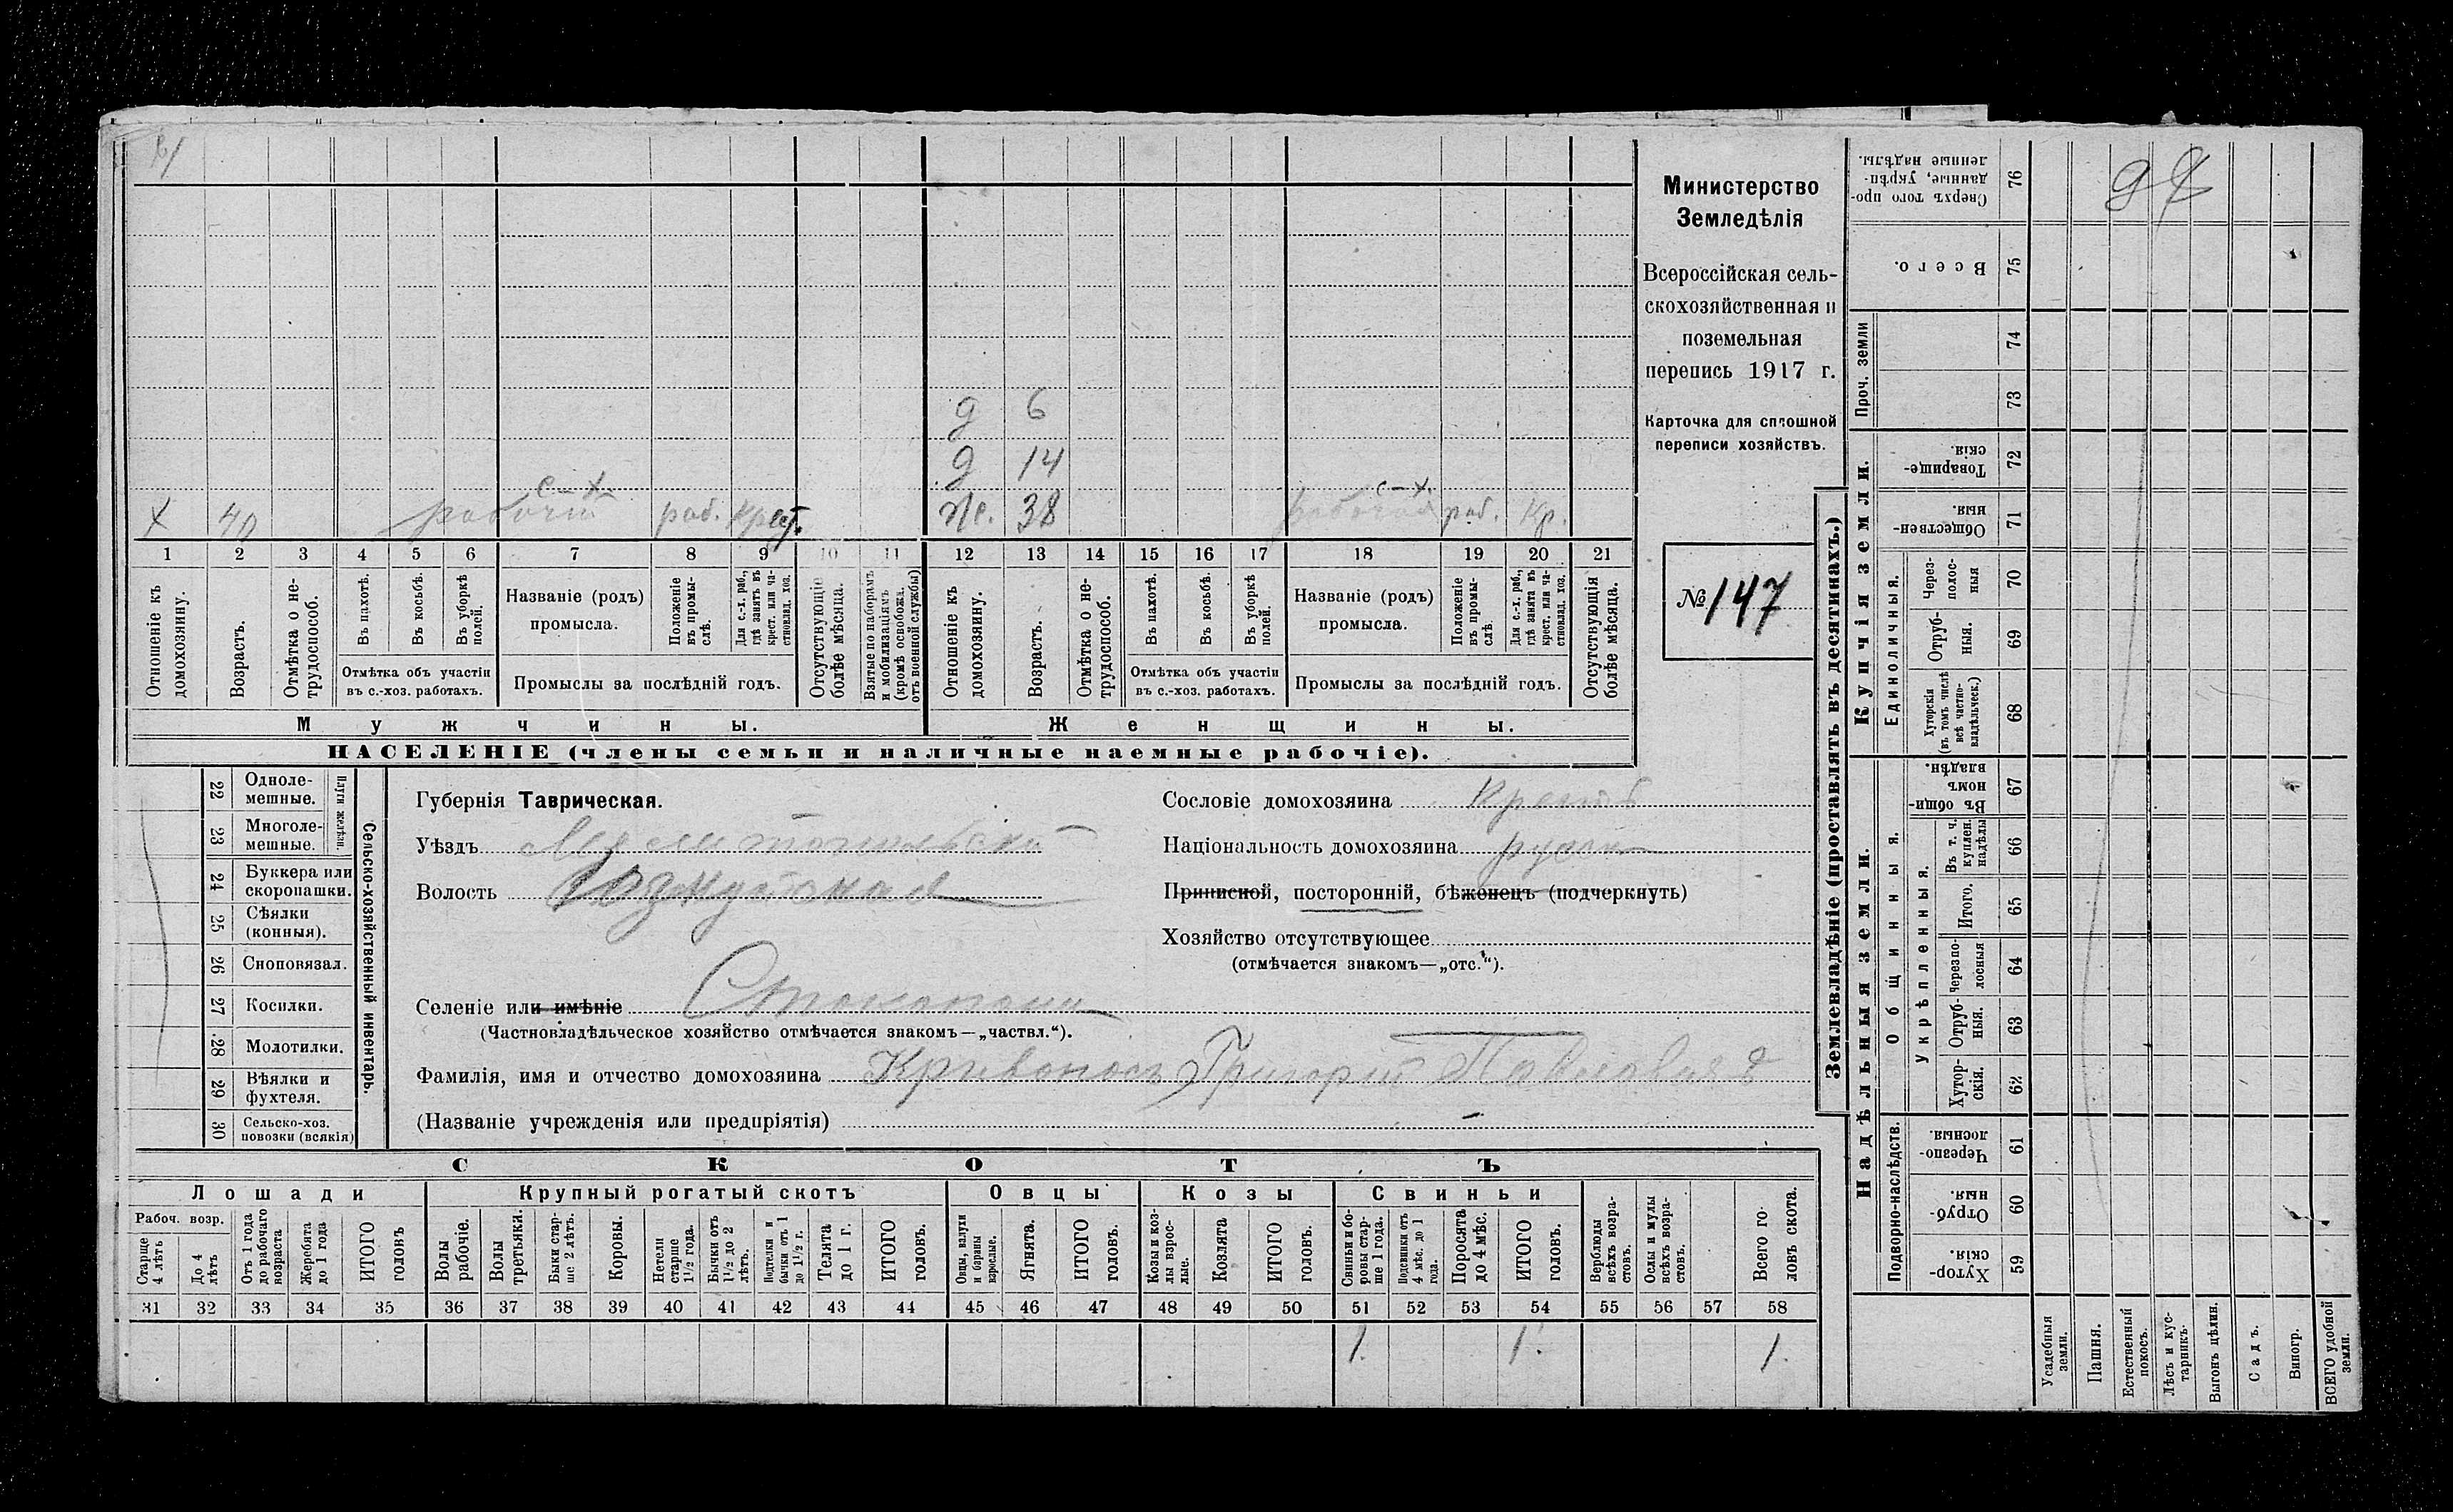 9
д 6
д 14
с-х. с-х.
х 40 рабочій раб. крест. ж. 38 рабочая раб. кр.
1 2 3 4 5 6 7 8 9 10 11 12 13 14 15 16 17 18 19 20 21
Отношеніе къ домохозяину.
Возрастъ.
Отмѣтка о не-трудоспособ.
Въ пахотѣ.
Въ косьбѣ.
Въ уборкѣ полей.
Отмѣтка объ участіи
въ с.-хоз. работахъ.
Названіе (родъ)
промысла.
Положеніе въ промы-слѣ.
Для с.-х. раб., гдѣ занятъ въ крест. или ча-стновлад. хоз.
Промыслы за послѣдній годъ.
Отсутствующіе болѣе мѣсяца.
Взятые по наборамъ и мобилизаціямъ (кромѣ освобожд. отъ военной службы)
Отношеніе къ домохозяину.
Возрастъ.
Отмѣтка о не-трудоспособ.
Въ пахотѣ.
Въ косьбѣ.
Въ уборкѣ полей.
Отмѣтка объ участіи
въ с.-хоз. работахъ.
Названіе (родъ)
промысла.
Положеніе въ промы-слѣ.
Для с.-х. раб., гдѣ занята въ крест. или ча-стновлад. хоз.
Промыслы за послѣдній годъ.
Отсутствующія болѣе мѣсяца.
Мужчины. Женщины.
НАСЕЛЕНІЕ (члены семьи и наличные наемные рабочіе).
Министерство
Земледѣлія
Всероссійская сель-
скохозяйственная и
поземельная
перепись 1917 г.
Карточка для сплошной
переписи хозяйствъ.
№ 147
Сельско-хозяйственный инвентарь.
Плуги желѣзн.
22 Одноле-мешные.
23 Многоле-мешные.
24 Буккера или скоропашки.
25 Сѣялки (конныя).
26 Сноповязал.
27 Косилки.
28 Молотилки.
29 Вѣялки и фухтеля.
30 Сельско-хоз. повозки (всякія)
Губернія Таврическая.
Уѣздъ Мелитопольскій
Волость
Селеніе или имѣніе
(Частновладѣльческое хозяйство отмѣчается знакомъ—„частвл.“).
Фамилія, имя и отчество домохозяина Кривоносъ Григорій Павловичъ
(Названіе учрежденія или предпріятія) –
Сословіе домохозяина Крест.
Національность домохозяина русск
Приписной, посторонній, бѣженецъ (подчеркнуть)
Хозяйство отсутствующее
(отмѣчается знакомъ—„отс.“).
СКОТЪ
Лошади Крупный рогатый скотъ Овцы Козы Свиньи
Рабоч. возр.
Старше 4 лѣтъ
До 4 лѣтъ
Отъ 1 года до рабочаго возраста
Жеребята до 1 года
ИТОГО головъ
Волы рабочіе.
Волы третьяки.
Быки стар-ше 2 лѣтъ.
Коровы.
Нетели старше 1½ года.
Бычки отъ 1½ до 2 лѣтъ.
Подтелки и бычки отъ 1 до 1½ г.
Телята до 1 г.
ИТОГО головъ.
Овцы, валухи и бараны взрослые.
Ягнята.
ИТОГО головъ.
Козы и коз-лы взрос-лые.
Козлята
ИТОГО головъ.
Свиньи и бо-ровы стар-ше 1 года.
Подсвинки отъ 4 мѣс. до 1 года.
Поросята до 4 мѣс.
ИТОГО головъ.
Верблюды всѣхъ возра-стовъ.
Ослы и мулы всѣхъ возра-стовъ.
Всего го-ловъ скота.
31 32 33 34 35 36 37 38 39 40 41 42 43 44 45 46 47 48 49 50 51 52 53 54 55 56 57 58
1. 1. 1.
Землевладѣніе (проставлять въ десятинахъ.)
Купчія земли.
Надѣльныя земли.
76 Сверхъ того про-данные, укрѣп-ленные надѣлы.
75 Всего.
Проч. земли
74
73
72 Товарище-скія.
71 Обществен-ныя.
Единоличныя.
70 Через-полос-ныя
69 Отруб-ныя.
68 Хуторскія (въ томъ числѣ всѣ частно-владѣльческ.)
Общинныя.
67 Въ общи-номъ владѣн.
Укрѣпленныя.
66 Въ т. ч. куплен. надѣлы
65 Итого.
64 Черезпо-лосныя
63 Отруб-ныя.
62 Хутор-скія.
Подворно-наслѣдств.
61 Черезпо-лосныя
60 Отруб-ныя.
59 Хутор-скія.
Усадебныя земли.
Пашня.
Естественный покосъ.
Лѣсъ и кус-тарникъ.
Выгонъ цѣлин.
Садъ.
Виногр.
ВСЕГО удобной земли.